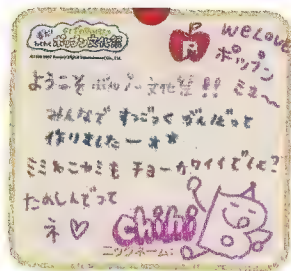 WE LOVE
ポップン
ミュ〜
ようこそ ポップン文化祭!!
みんなで すっごっく がんばって
作りましたーォォ
ミミもニャミも チョーカワイイでしょ?
たのしんでって
ネ♡
chihi
ニックネーム: